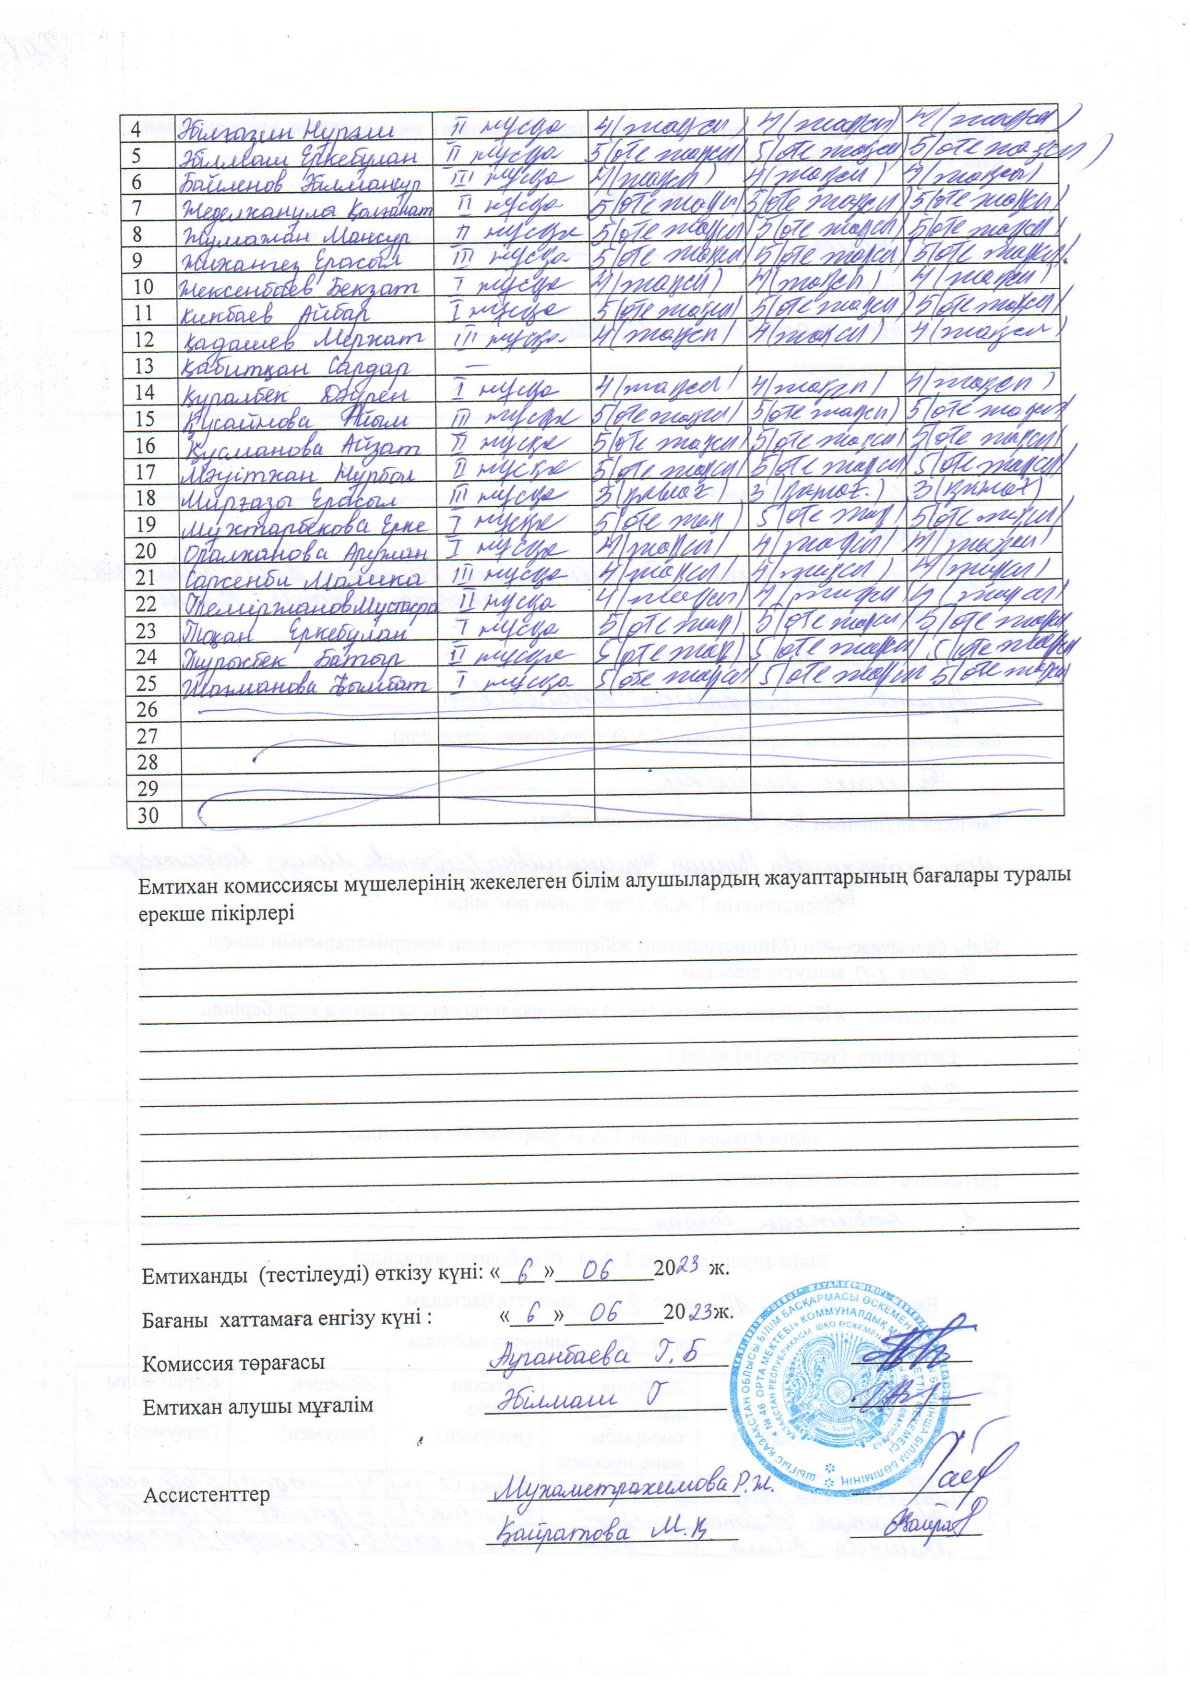 4 Әбілғазин Нұрәли II нұсқа 4(жақсы) 4(жақсы) 4(жақсы)
5 Әбілмаш Еркебұлан II нұсқа 5(өте жақсы) 5(өте жақсы) 5(өте жақсы)
6 Байленов Әбілмансур III нұсқа 4(жақсы) 4(жақсы) 4(жақсы)
7 II нұсқа 5(өте жақсы) 5(өте жақсы) 5(өте жақсы)
8 Жұмажан Мансур II нұсқа 5(өте жақсы) 5(өте жақсы) 5(өте жақсы)
9 Жихангез Ерасыл III нұсқа 5(өте жақсы) 5(өте жақсы) 5(өте жақсы)
10 Жексенбаев Бекзат I нұсқа 4(жақсы) 4(жақсы) 4(жақсы)
11 Кикбаев Айбар I нұсқа 5(өте жақсы) 5(өте жақсы) 5(өте жақсы)
12 Қадашев Мерхат III нұсқа 4(жақсы) 4(жақсы) 4(жақсы)
13 Қабитқан Сардар —
14 Құралбек I нұсқа 4(жақсы) 4(жақсы) 4(жақсы)
15 Құсайнова Айым III нұсқа 5(өте жақсы) 5(өте жақсы) 5(өте жақсы)
16 Құсманова Айзат II нұсқа 5(өте жақсы) 5(өте жақсы) 5(өте жақсы)
17 Мәуітхан Нұрбол II нұсқа 5(өте жақсы) 5(өте жақсы) 5(өте жақсы)
18 Мирғазы Ерасыл III нұсқа 3 3 3
19 Мұхтарбекова Ерке I нұсқа 5(өте жақ) 5(өте жақ) 5(өте жақсы)
20 Оралханова Аружан I нұсқа 4(жақсы) 4(жақсы) 4(жақсы)
21 Сарсенби Малика III нұсқа 4(жақсы) 4(жақсы) 4(жақсы)
22 Темиржанов Мустафа II нұсқа 4(жақсы) 4(жақсы) 4(жақсы)
23 Тоқан Еркебұлан I нұсқа 5(өте жақ) 5(өте жақсы) 5(өте жақсы)
24 Тұрысбек Батыр II нұсқа 5(өте жақ) 5(өте жақсы) 5(өте жақсы)
25 Шахманова Қымбат I нұсқа 5(өте жақсы) 5(өте жақсы) 5(өте жақсы)
26
27
28
29
30
Емтихан комиссиясы мүшелерінің жекелеген білім алушылардың жауаптарының бағалары туралы
ерекше пікірлері
Емтиханды (тестілеуді) өткізу күні: «6» 06 2023 ж.
Бағаны хаттамаға енгізу күні : «6» 06 2023ж.
Комиссия төрағасы Ауганбаева Г.Б
Емтихан алушы мұғалім Әбілмаш Г
Ассистенттер Мухаметрахимова Р.Ж.
Қайратова М.Қ